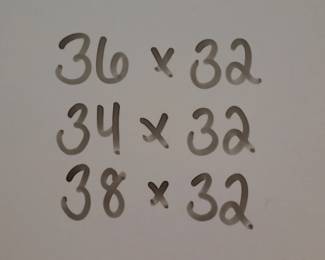 36 x 32
34 x 32
38 x 32